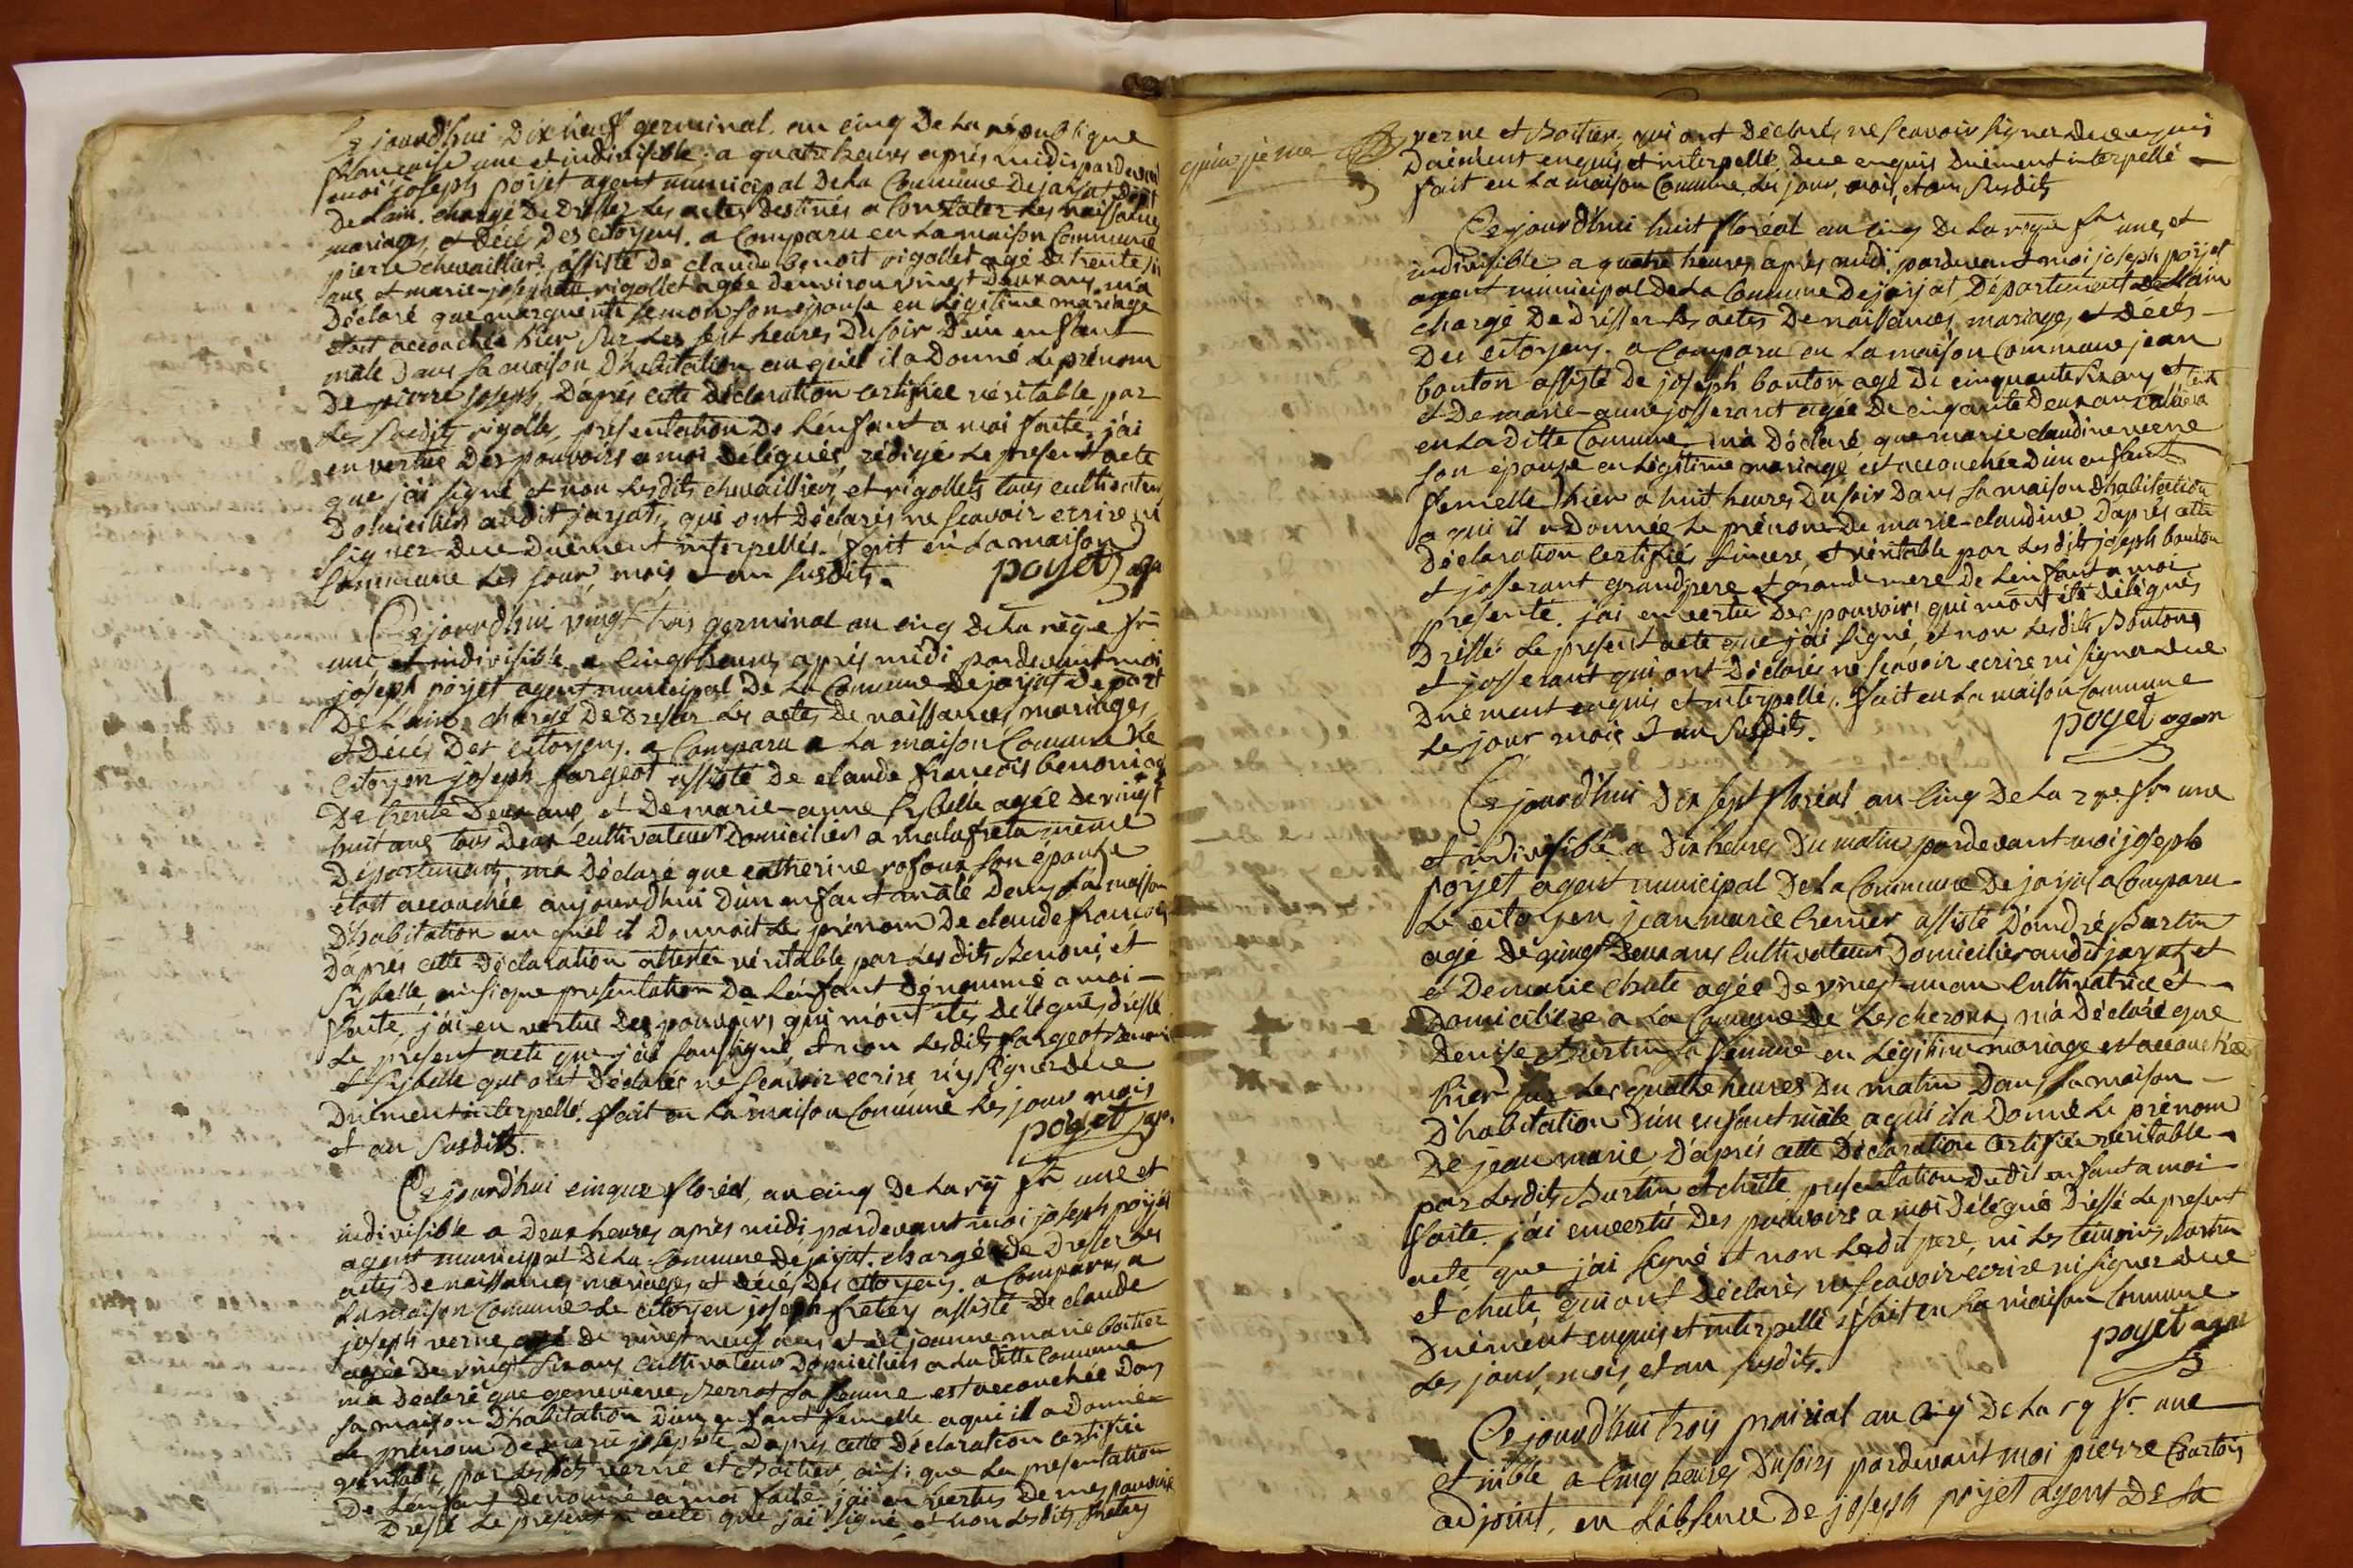 Ce jourd'hui Dix neuf germinal, an cinq De La république
francaise une et indivisible, a quatre heures après midi pardevant
moi joseph poijet agent municipal De La Commune De jayat Dépt
De Lain. chargé De Dresser Les actes destinés a Constater Les naissances
mariages, et Décés Des citoyens. a Comparu en La maison Commune
pierre chevaillier, assisté De claude benoit rigollet agé De trente six
ans, et marie-josephte rigollet agée denviron vingt Deux ans, m'a
Déclaré que marguerite semon son épouse en Légitime mariage
étoit accouchée hier Sur Les sept heures Du soir D'un enfant
mâle Dans sa maison D'habitation au quel il a Donné Le prénom
De pierre joseph, D'après cette déclaration certifiée véritable par
Les susdits rigollet, présentation De L'enfant a moi faite, j'ai
en vertue Des pouvoirs a moi délégués, rédigés Le present acte
que j'ai signé et non Lesdits chevailliers, et rigollets tous cultivateurs
Domiciliés audit jayat, qui ont Déclarés ne scavoir ecrire ni
signer de ce Duement interpellés. fait en La maison
Commune Les jour, mois et an susdits. poijet agt
Ce jourd'hui vingt trois germinal an cinq De La rége fr
une et indivisible a Cinq heures après midi pardevant moi
joseph poijet agent municipal De La Commune De jayat Depart
De L'ain, chargé De Dresser Les actes De naissances, mariages,
et Décés Des citoyens. a Comparu a La maison Commune Le
Citoyen joseph fargeot assisté De claude françois benoni agé
De trente Deux ans, et De marie-anne sybelle agée De vingt
huit ans tous Deux cultivateurs Domiciliés a malafreta même
Département, m'a Déclaré que catherine son épouse
étoit accouchée aujourdhui D'un enfant mâle Dans sa maison
D'habitation au quel il Donnoit Le prénom De claude françois
D'après cette Déclaration attestée véritable par Lesdits Benoni, et
sybelle, ainsi que présentation De L'enfant dénommé a moi
faite, j'ai en vertue Des pouvoirs qui m'ont étés délégués dressé
Le present acte que j'ai soussigné, et non Lesdits fargeot Benoni
et sybelle qui ont Déclarés ne scavoir ecrire, ny signer de ce
Duement interpellé. fait en La maison Commune Les jour mois
et an susdits. poijet agt
Ce jourd'hui cinque floréal, an cinq De La rq fr une et
indivisible a Deux heures après midi pardevant moi joseph poijet
agent municipal De La Commune De jayat. chargé De Dresser Les
actes De naissances, mariages, et décés Des citoyens. a Comparu a
La maison Commune Le citoyen joseph fretey assisté De claude
joseph verne agé De vingt neuf ans et De jeanne marie boitier
agée De vingt six ans, cultivateurs Domiciliés a La ditte Commune
m'a Déclaré que genevieve Perrat sa femme est accouchée Dans
sa maison D'habitation D'un enfant femelle a qui il a donnée
Le prénom De marie josephte, D'apres cette Déclaration certifiée
véritable par Lesdits verne et Boitier, ainsi que La présentation
De L'enfant denommé a moi faite, j'ai en vertus De mes pouvoirs
Dressé Le present acte que j'ai signé, et non Lesdits fretey
quinzième
verne et Boitier, qui ont Déclarés ne scavoir signer de ce enquis
Duement enquis et interpellé de ce enquis duement interpellé
fait en La maison Commune Les jour, mois, et an susdits
Ce jourd'hui huit floréal an cinq De La rque fr une, et
indivisible a quatre heures après midi, pardevant moi joseph poijet
agent municipal De La Commune De jayat, Département de Lain
chargé De Dresser Les actes De naissances, mariages, et Décés
Des citoyens. a Comparu en La maison Commune jean
bouton assisté De joseph bouton agé De cinquante six ans, et
et De marie-anne josserant agée De cinqante Deux ans
en La ditte Commune, m'a Déclaré que marie claudine verne
son épouse en Légitime mariage est accouchée D'un enfant
femelle hier a huit heures Du soir Dans sa maison D'habitation
a qui il a Donnée Le prénom De marie-claudine D'après cette
Déclaration Certifiée sincere, et véritable par Lesdits joseph bouton
et josserant grand pere et grande mere De L'enfant a moi
presenté. j'ai en vertu Des pouvoirs qui mont été délégués
Dréssé Le present acte que j'ai signé, et non Lesdits Boutons
et josserant qui ont Déclarés ne scavoir ecrire ni signer de ce
Duement enquis et interpellé. fait en La maison Commune
Les jour mois et an susdits. poijet agent
Ce jourd'hui Dix sept floréal an Cinq De La rque fr une
et indivisible a Dix heures Du matin pardevant moi joseph
poijet agent municipal De La Commune De jayat a Comparu
Le citoyen jean marie assisté D'andré Burtin
agé De vingt Deux ans Cultivateur Domicilier audit jayat et
et De marie chute agée De vingt-un an Cultivatrice et
Domiciliere a La Commune De Lescheroux, m'a Déclaré que
Denise Burtin sa femme en Légitime mariage est accouchée
hier sur Les quatre heures Du matin Dans sa maison
D'habitation D'un enfant mâle a qui il a Donné Le prénom
De jean marie D'après cette Déclaration Certifiée véritable
par Lesdits Burtin et chute, présentation dudit enfant a moi
faite. j'ai en vertu Des pouvoirs a moi Délégués Dréssé Le présent
acte que j'ai signé et non Ledit pere, ni Les temoins Burtin
et chute, qui ont Déclarés ne scavoir ecrire ni signer de ce
Duement enquis et interpellé. fait en La maison Commune
Les jour, mois, et an susdits. poijet agent
Ce jourd'hui trois prairial an Cinq De La rq fr une
et nible a Cinq heures Du soir, pardevant moi pierre
adjoint, en L'absence De joseph poijet agent De La